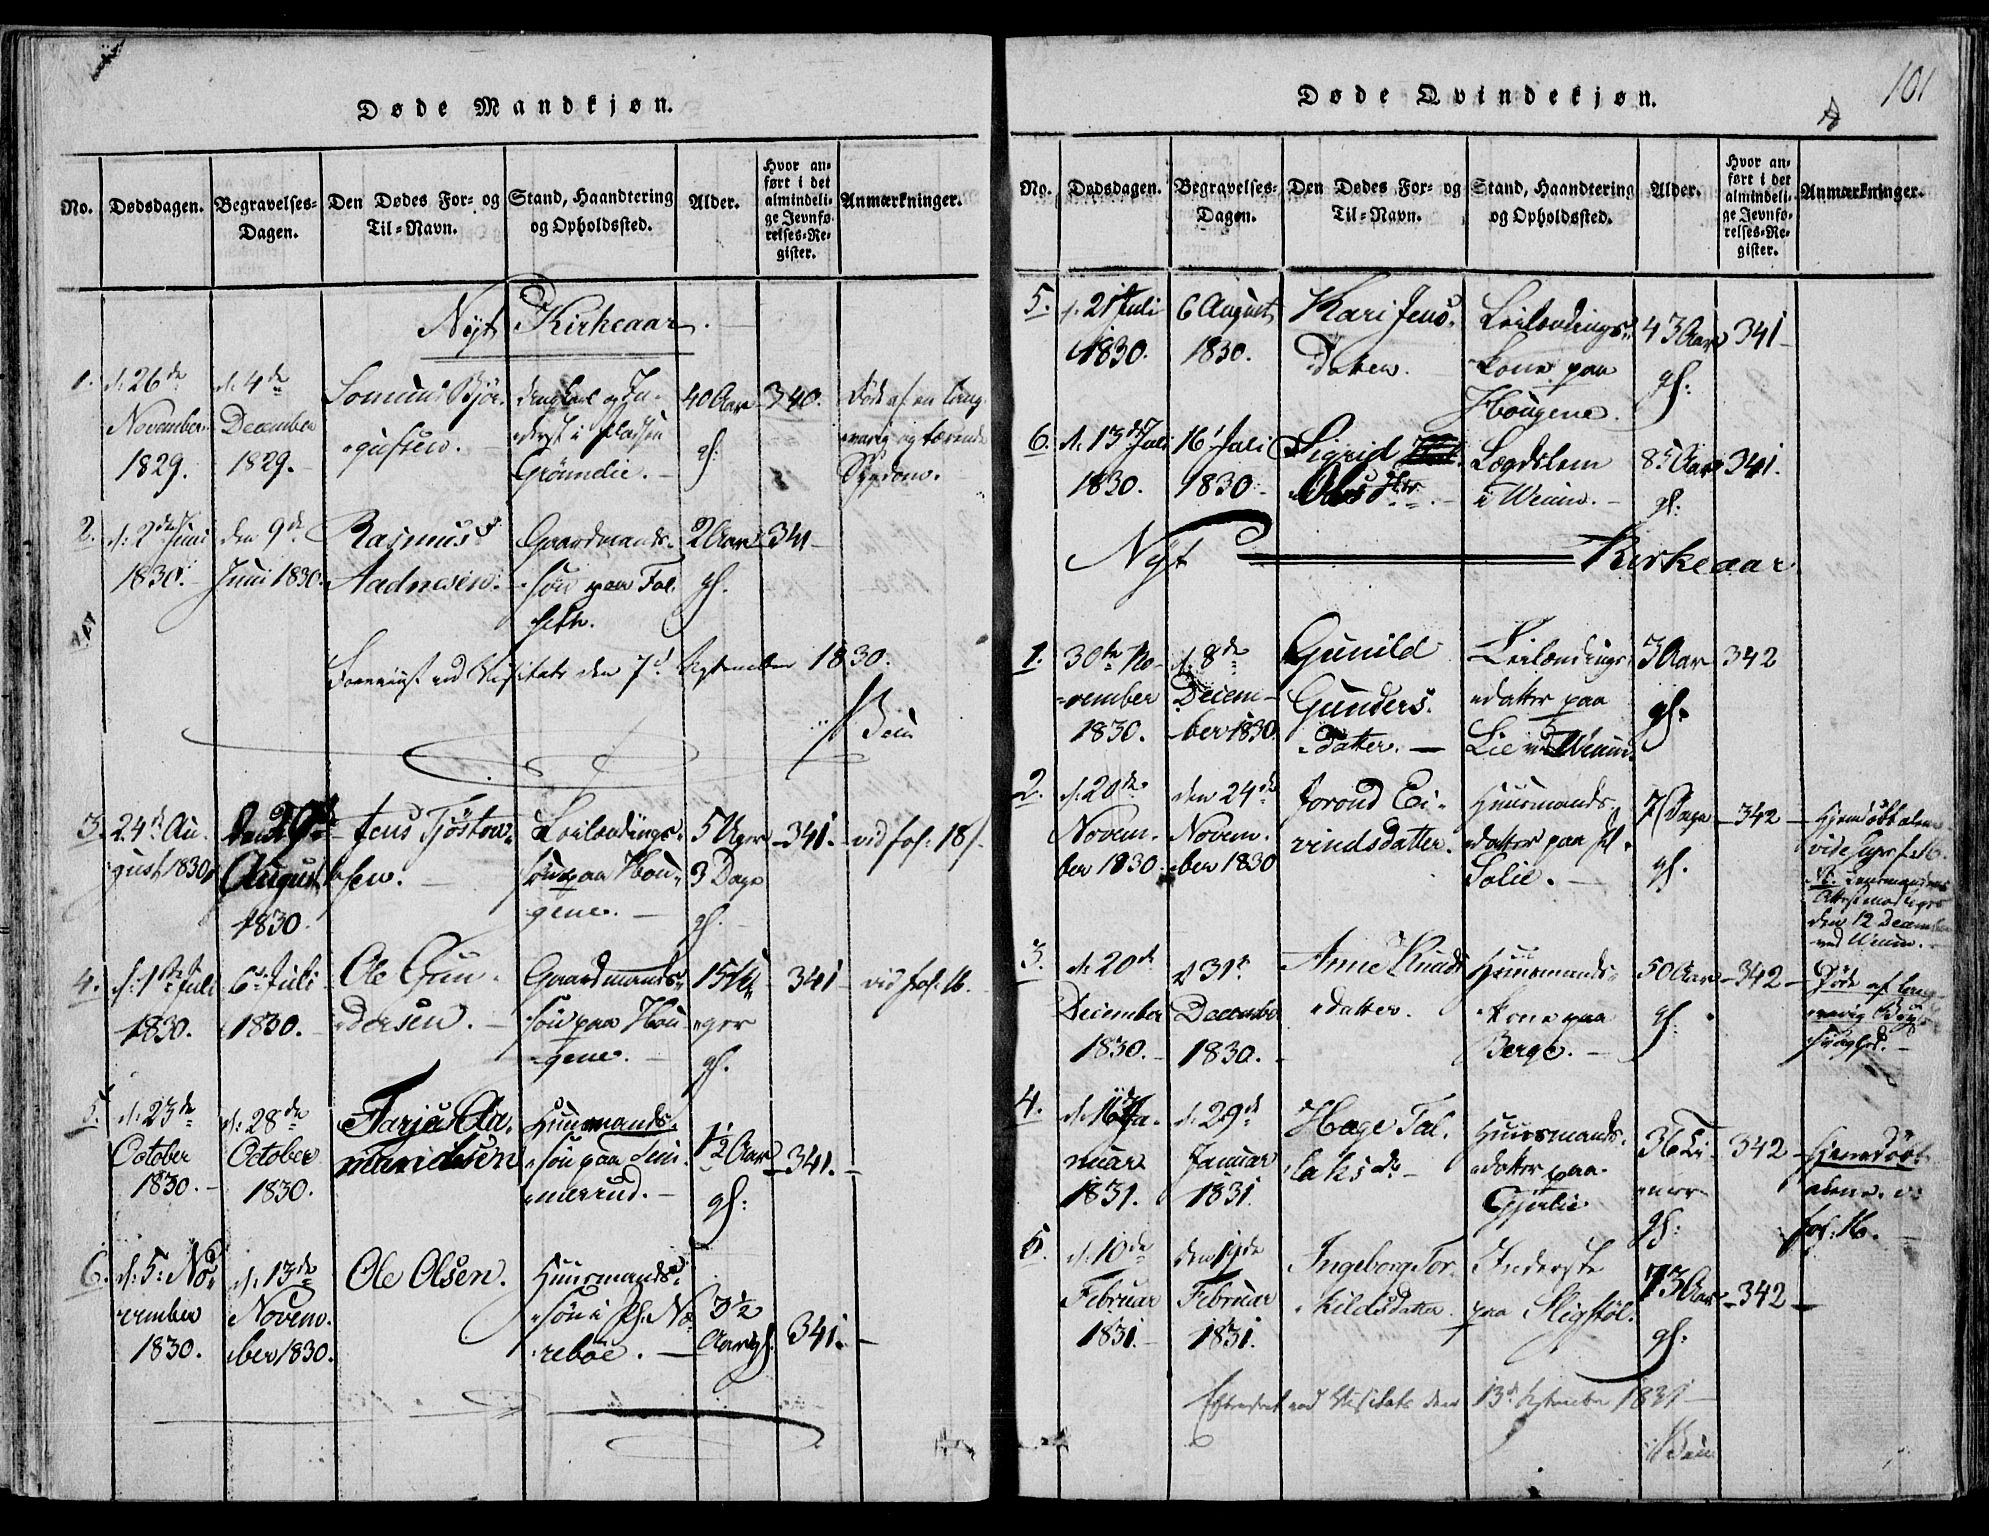 Døde Mandkjøn.
No.
Dødsdagen.
Begravelses-
Dagen.
Den Dødes For- og
Til-Navn.
Stand, Haandtering
og Opholdssted.
Alder.
Hvor an-
ført i det
almindeli-
ge Jevnfø-
relses-Re-
gister.
Anmærkninger.
Nyt Kirkeaar.
1.
d. 26de
November
1829.
d. 4de
December
1829.
40 Aar
gf:
340.
Døde af en lang-
varig og tærende
Sygdom.
2.
d: 2den Juni
1830.
den 9de
Juni 1830.
Rasmus
Aadnesen.
Gaardmands-
søn paa Fol-
seth.
2 Aar
gf.
341
ved Visitats den 7d September 1830.
3.
24de Au-
gust 1830
den 29de
August
1830.
Jens Tjøstow-
sen.
Leilændings-
søn paa Hou-
gene.
5 Uger
3 Dage
gf.
341.
vid fol: 18
4.
d: 1ste Juli
1830.
6te Juli
1830.
Ole Gun-
dersen.
Gaardmands-
søn paa Hou-
gene.
15 U-
ger
gf.
341
vid fol: 16.
5.
d. 23de
October
1830.
d: 28de
October
1830.
Tarjus Aa-
mundsen
Huusmands-
søn paa
merrud.
1½ Aar
gf:
341.
6.
d: 5: No-
vember
1830.
d. 13de
Novem-
ber 1830.
Ole Olsen.
Huusmands-
søn i Pl: Næ-
reböe.
3½
Aar gf.
341.
101
Døde Qvindekjøn.
No.
Dødsdagen.
Begravelses-
Dagen.
Den Dødes For- og
Til-Navn.
Stand, Haandtering
og Opholdssted.
Alder.
Hvor an-
ført i det
almindeli-
ge Jevnfø-
relses-Re-
gister.
Anmærkninger.
5.
d. 21 Juli
1830.
6 August
1830.
Kari Jens-
Datter.
Leilændings-
Kone paa
Hougene.
43 Aar
gf:
341
6.
d. 13de Juli
1830.
16 Juli
1830
Sigrid
Ols Dtr.
Lægdslem
i
85 Aar
gf:
341.
Nyt Kirkeaar.
1.
30te No-
vember
1830.
d. 8de
Decem-
ber 1830.
Gunild
Gunders-
datter.
Leilændings-
datter paa
Lie
3 Aar
gf.
342
2.
d. 20de
Novem-
ber 1830.
den 24de
Novem-
ber 1830
Jorond Ei-
vindsdatter.
Huusmands-
datter paa
Solie.
7 Dage
gf.
342
Hjemdøbt
den 12 December
3.
d. 20de
December
1830.
d 31te
December
1830.
Anne Knuds
datter.
Huusmands-
kone paa
Berge.
50 Aar
gf:
342
Døde af lang-
varig Bryst-
svaghed.
4.
d. 16 Ja-
nuar
1831.
d. 29de
Januar
1831.
Hæge Tal-
laksdr
Huusmands-
datter paa
Gjerlie
36 Ti-
mer
gf:
342
Hjemdöbt
alene. v:
fol: 16.
5.
d. 10de
Februar
1831.
den 19de
Februar
1831.
Ingeborg Tor-
kildsdatter
Inderste
paa Sligstøl.
73 Aar
gf:
342
Efterseet ved Visitats den 13de September 1831